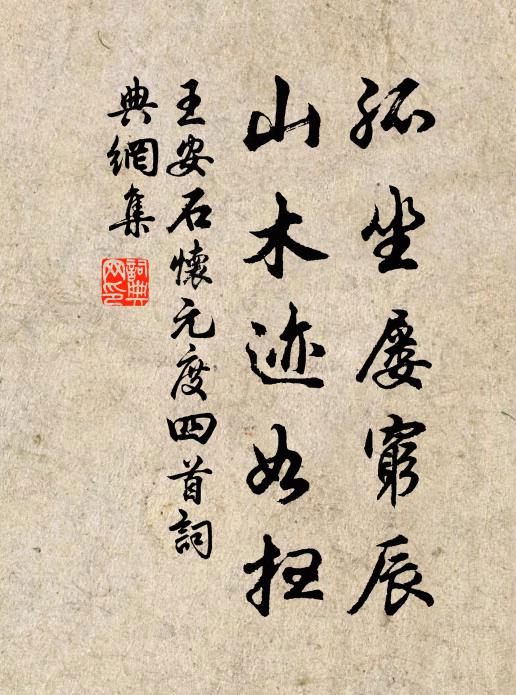 孤坐屡穷辰
山木迹如扫
王安石懷元度四首詞
典網集
詞典
网印